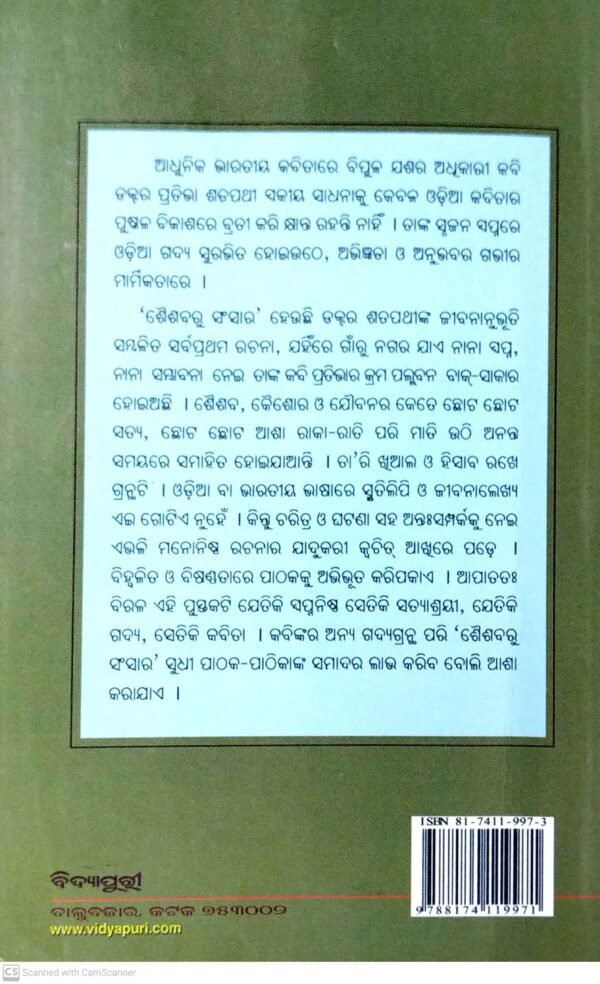 ଆଧୁନିକ ଭାରତୀୟ କବିତାରେ ବିପୁଳ ଯଶର ଅଧିକାରୀ କବି
ଡକ୍ଟର ପ୍ରତିଭା ଶତପଥୀ ସକୀୟ ସାଧନାକୁ କେବଳ ଓଡ଼ିଆ କବିତାର
ପୁଷ୍କଳ ବିକାଶରେ ବ୍ରତୀ କରି କ୍ଷାନ୍ତ ରହନ୍ତି ନାହିଁ । ତାଙ୍କ ସୃଜନ ସପ୍ନରେ
ଓଡ଼ିଆ ଗଦ୍ୟ ସୁରଭିତ ହୋଇଉଠେ, ଅଭିଜ୍ଞତା ଓ ଅନୁଭବର ଗଭୀର
ମାର୍ମିକତାରେ ।
‘ଶୈଶବରୁ ସଂସାର’ ହେଉଛି ଡକ୍ଟର ଶତପଥୀଙ୍କ ଜୀବନାନୁଭୂତି
ସମ୍ବଳିତ ସର୍ବପ୍ରଥମ ରଚନା, ଯହିଁରେ ଗାଁରୁ ନଗର ଯାଏ ନାନା ସପ୍ନ,
ନାନା ସମ୍ଭାବନା ନେଇ ତାଙ୍କ କବି ପ୍ରତିଭାର କ୍ରମ ପଲ୍ଲବନ ବାକ୍-ସାକାର
ହୋଇଅଛି । ଶୈଶବ, କୈଶୋର ଓ ଯୌବନର କେତେ ଛୋଟ ଛୋଟ
ସତ୍ୟ, ଛୋଟ ଛୋଟ ଆଶା ରାକା-ରାତି ପରି ମାତି ଉଠି ଅନନ୍ତ
ସମୟରେ ସମାହିତ ହୋଇଯାଆନ୍ତି । ତା’ରି ଖିଆଲ ଓ ହିସାବ ରଖେ
ଗ୍ରନ୍ଥଟି । ଓଡ଼ିଆ ବା ଭାରତୀୟ ଭାଷାରେ ସ୍ମୃତିଲିପି ଓ ଜୀବନାଲେଖ୍ୟ
ଏଇ ଗୋଟିଏ ନୁହେଁ । କିନ୍ତୁ ଚରିତ୍ର ଓ ଘଟଣା ସହ ଅନ୍ତଃସମ୍ପର୍କକୁ ନେଇ
ଏଭଳି ମନୋନିଷ୍ଠ ରଚନାର ଯାଦୁକରୀ କ୍ୱଚିତ୍ ଆଖିରେ ପଡ଼େ ।
ବିହ୍ୱଳିତ ଓ ବିଷଣ୍ଣତାରେ ପାଠକକୁ ଅଭିଭୂତ କରିପକାଏ । ଆପାତତଃ
ବିରଳ ଏହି ପୁସ୍ତକଟି ଯେତିକି ସପ୍ନନିଷ୍ଠ ସେତିକି ସତ୍ୟାଶ୍ରୟୀ, ଯେତିକି
ଗଦ୍ୟ, ସେତିକି କବିତା । କବିଙ୍କର ଅନ୍ୟ ଗଦ୍ୟଗ୍ରନ୍ଥ ପରି ‘ଶୈଶବରୁ
ସଂସାର’ ସୁଧୀ ପାଠକ-ପାଠିକାଙ୍କ ସମାଦର ଲାଭ କରିବ ବୋଲି ଆଶା
କରାଯାଏ ।
ISBN 81-7411-997-3
9 788174 119971
ବିଦ୍ୟାପୁରୀ
ବାଲୁବଜାର, କଟକ ୭୫୩୦୦୨
www.vidyapuri.com
CS Scanned with CamScanner